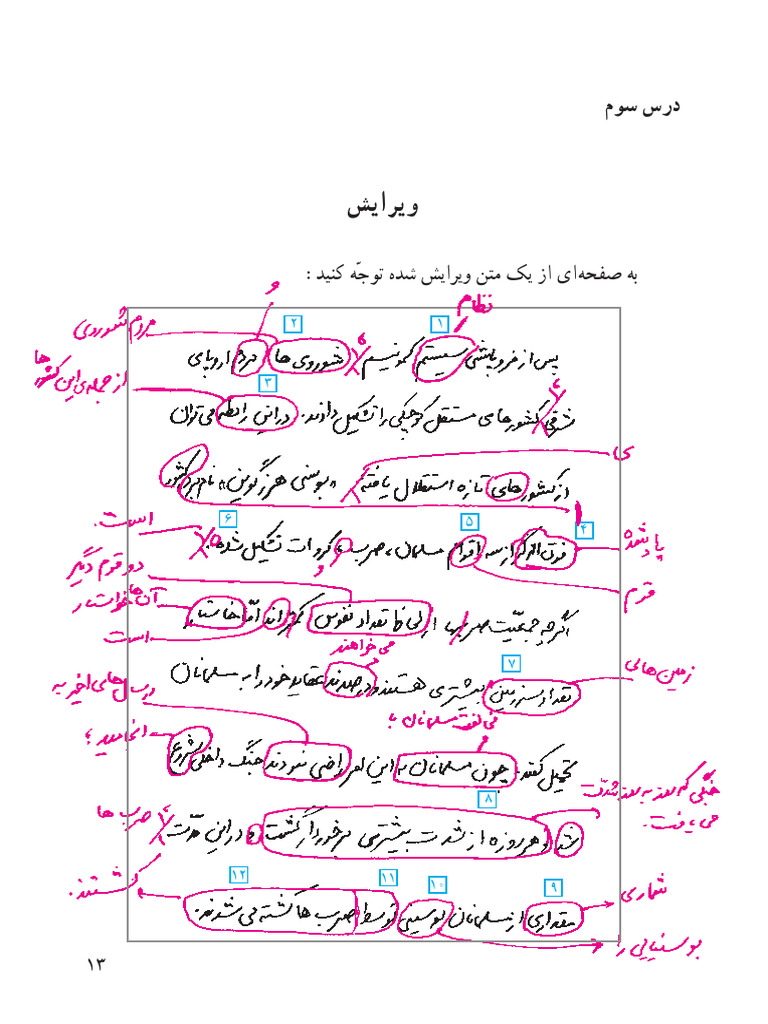 درس سوم
ویرایش
به صفحه‌ای از یک متن ویرایش شده توجّه کنید :
نظام
و
۱
۲
مردم شوروی
پس از فروپاشی سیستم کمونیسم شوروی ها مردم اروپای
از جمله‌ی این کشورها
۳
شرقی کشورهای مستقل کوچکی را تشکیل دادند. در این رابطه می توان
ی
از کشورهای تازه استقلال یافته «بوسنی هرزگوین» نام برد کشور
است.
۴
۵
۶
پاشده
فوق الذکر از سه اقوام مسلمان، صرب، کروات تشکیل شده
دو قوم دیگر
قوم
آن‌ها خواستار
اگرچه جمعیّت صرب‌ها از لحاظ تعداد نفوس کمتراند امّا خواستار
است
می خواهند
۷
زمین‌هایی
تعداد سرزمین بیشتری هستند و درصددند عقاید خود را به مسلمانان
در سال‌های اخیر به
مخالفت مسلمانان با
انجامید؛
تحمیل کنند. چون مسلمانان به این امر راضی نبودند جنگ داخلی شروع
جنگی که روز به روز شدّت
می یافت.
۸
شد و هر روزه از شدت بیشتری برخوردار گشت. در این مدّت
صرب ها
۹
۱۰
۱۱
۱۲
شماری
کشتند.
مقداری از مسلمانان بوسنی توسط صرب ها کشته می شدند.
بوسنیایی را
۱۳